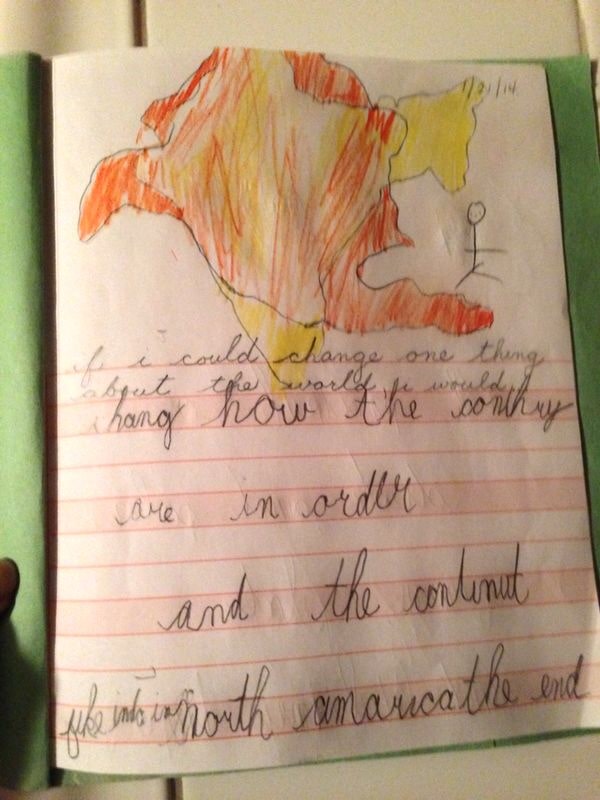 1/21/14
if i could change one thing
about the world i would
chang how the contry
are in order
and the continut
like in north amarica the end